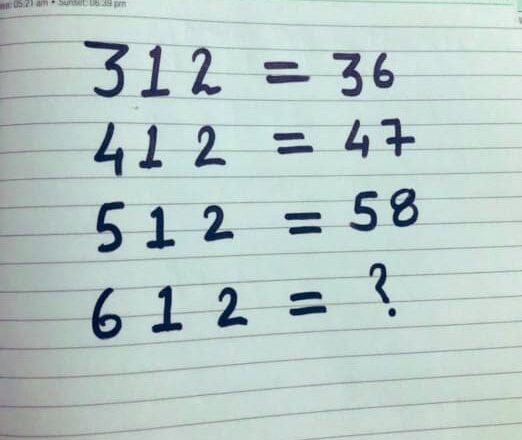 05:21 am • Sunset: 06:39 pm
312 = 36
412 = 47
512 = 58
612 = ?